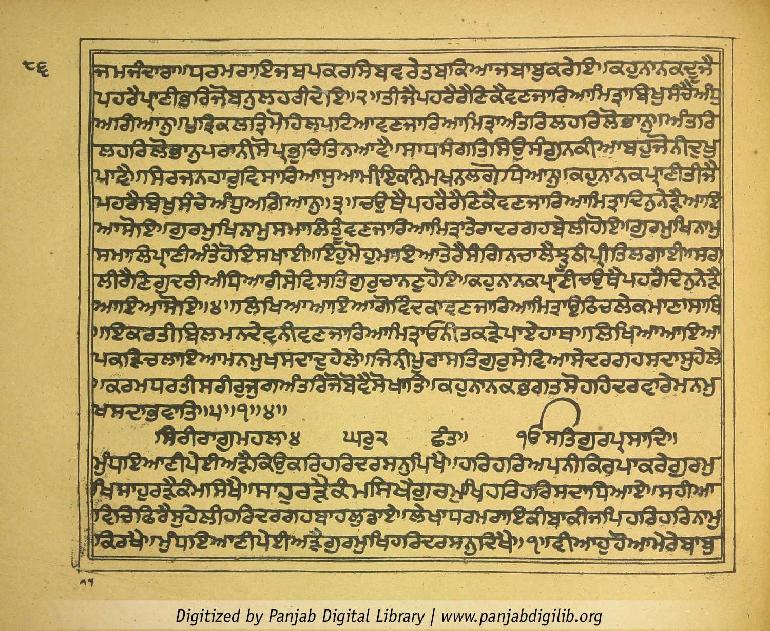 ੮੬
ਜਮਜੰਦਾਰਾ॥ਧਰਮਰਾਇਜਬਪਕਰਸਿਬਵਰੇਤਬਕਿਆਜਬਾਬੁਕਰੇਇ॥ਕਹੁਨਾਨਕਦੂਜੈ
ਪਹਰੈਪ੍ਰਾਣੀਭਰਿਜੋਬਨੁਲਹਰੀਦੇਇ॥੨॥ਤੀਜੈਪਹਰੈਰੈਣਿਕੈਵਣਜਾਰਿਆਮਿਤ੍ਰਾਬਿਖੁਸੰਚੈਅੰਧੁ
ਅਗਿਆਨੁ॥ਪੁਤ੍ਰਿਕਲਤ੍ਰਿਮੋਹਿਲਪਟਿਆਵਣਜਾਰਿਆਮਿਤ੍ਰਾਅੰਤਰਿਲਹਰਿਲੋਭਾਨੁ॥ਅੰਤਰਿ
ਲਹਰਿਲੋਭਾਨੁਪਰਾਨੀਸੋਪ੍ਰਭੁਚਿਤਿਨਆਵੈ॥ਸਾਧਸੰਗਤਿਸਿਉਸੰਗੁਨਕੀਆਬਹੁਜੋਨੀਦੁਖੁ
ਪਾਵੈ॥ਸਿਰਜਨਹਾਰੁਵਿਸਾਰਿਆਸੁਆਮੀਇਕਨਿਮਖਨਲਗੋਧਿਆਨੁ॥ਕਹੁਨਾਨਕਪ੍ਰਾਣੀਤੀਜੈ
ਪਹਰੈਬਿਖੁਸੰਚੇਅੰਧੁਅਗਿਆਨੁ॥੩॥ਚਉਥੈਪਹਰੈਰੈਣਿਕੈਵਣਜਾਰਿਆਮਿਤ੍ਰਾਦਿਨੁਨੇੜੈਆਇ
ਆਸੋਇ॥ਗੁਰਮੁਖਿਨਾਮੁਸਮਾਲਿਤੂੰਵਣਜਾਰਿਆਮਿਤ੍ਰਾਤੇਰਾਦਰਗਹਬੇਲੀਹੋਇ॥ਗੁਰਮੁਖਿਨਾਮੁ
ਸਮਾਲਿਪ੍ਰਾਣੀਅੰਤੇਹੋਇਸਖਾਈ॥ਇਹੁਮੋਹੁਮਾਇਆਤੇਰੈਸੰਗਿਨਚਾਲੈਝੂਠੀਪ੍ਰੀਤਿਲਗਾਈ॥ਸਗ
ਲੀਰੈਣਿਗੁਦਰੀਅੰਧਿਆਰੀਸੇਵਿਸਤਿਗੁਰੁਚਾਨਣੁਹੋਇ॥ਕਹੁਨਾਨਕਪ੍ਰਾਣੀਚਉਥੈਪਹਰੈਦਿਨੁਨੇੜੈ
ਆਇਆਸੋਇ॥੪॥ਲਿਖਿਆਆਇਆਗੋਵਿੰਦਕਾਵਣਜਾਰਿਆਮਿਤ੍ਰਾਉਠਿਚਲੇਕਮਾਣਾਸਾਥਿ
॥ਇਕਰਤੀਬਿਲਮਨਦੇਵਨੀਵਣਜਾਰਿਆਮਿਤ੍ਰਾਓਨੀਤਕੜੇਪਾਏਹਾਥ॥ਲਿਖਿਆਆਇਆ
ਪਕੜਿਚਲਾਇਆਮਨਮੁਖਸਦਾਦੁਹੇਲੇ॥ਜਿਨੀਪੂਰਾਸਤਿਗੁਰੁਸੇਵਿਆਸੇਦਰਗਹਸਦਾਸੁਹੇਲੇ
॥ਕਰਮਧਰਤੀਸਰੀਰੁਜੁਗਅੰਤਰਿਜੋਬੋਵੈਸੋਖਾਤਿ॥ਕਹੁਨਾਨਕਭਗਤਸੋਹਹਿਦਰਵਾਰੇਮਨਮੁ
ਖਸਦਾਭਵਾਤਿ॥੫॥੧॥੪॥
ਸਿਰੀਰਾਗੁਮਹਲਾ੪ ਘਰੁ੨ ਛੰਤ॥ ੧ੴਸਤਿਗੁਰਪ੍ਰਸਾਦਿ॥
ਮੁੰਧਇਆਣੀਪੇਈਅੜੈਕਿਉਕਰਿਹਰਿਦਰਸਨੁਪਿਖੈ॥ਹਰਿਹਰਿਅਪਨੀਕਿਰਪਾਕਰੇਗੁਰਮੁ
ਖਿਸਾਹੁਰੜੈਕੰਮਸਿਖੈ॥ਸਾਹੁਰੜੈਕੰਮਸਿਖੈਗੁਰਮੁਖਿਹਰਿਹਰਿਸਦਾਧਿਆਏ॥ਸਹੀਆ
ਵਿਚਿਫਿਰੈਸੁਹੇਲੀਹਰਿਦਰਗਹਬਾਹਲੁਡਾਏ॥ਲੇਖਾਧਰਮਰਾਇਕੀਬਾਕੀਜਪਿਹਰਿਹਰਿਨਾਮੁ
ਕਿਰਖੈ॥ਮੁੰਧਇਆਣੀਪੇਈਅੜੈਗੁਰਮੁਖਿਹਰਿਦਰਸਨੁਦਿਖੈ॥੧॥ਵੀਆਹੁਹੋਆਮੇਰੇਬਾਬੁ
੧੧
Digitized by Panjab Digital Library | www.panjabdigilib.org